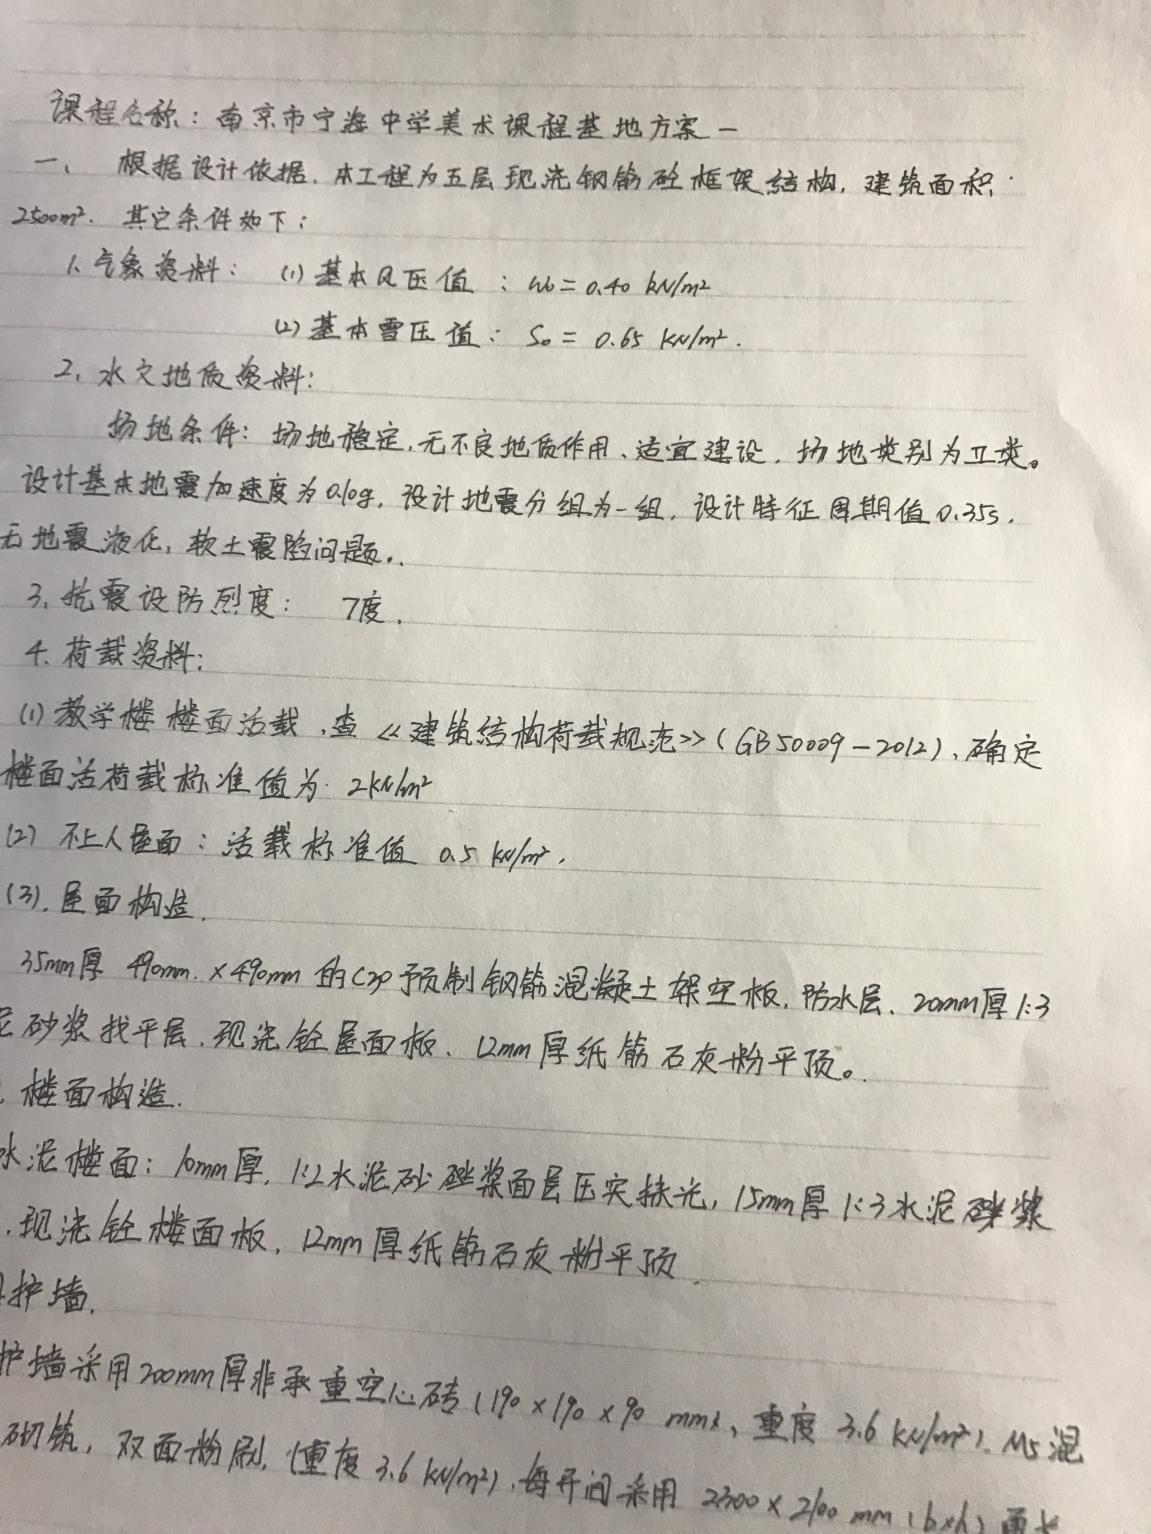 课程名称：南京市宁海中学美术课程基地方案一
一、 根据设计依据，本工程为五层现浇钢筋砼框架结构，建筑面积
2500m²．其它条件如下：
1. 气象资料： (1) 基本风压值 ：w₀= 0.40 kN/m²
(2) 基本雪压值： S₀ = 0.65 kN/m².
2. 水文地质资料：
场地条件：场地稳定，无不良地质作用、适宜建设，场地类别为Ⅱ类。
设计基本地震加速度为0.10g，设计地震分组为一组，设计特征周期值0.35s，
无地震液化，软土震陷问题。
3. 抗震设防烈度： 7度．
4. 荷载资料：
(1) 教学楼楼面活载，查《建筑结构荷载规范》(GB50009－2012)、确定
楼面活荷载标准值为 2kN/m²
(2) 不上人屋面：活载标准值 0.5 kN/m²，
(3). 屋面构造．
35mm厚 490mm × 490mm 的C20预制钢筋混凝土架空板，防水层、20mm厚1:3
砂浆找平层，现浇砼屋面板、12mm厚纸筋石灰粉平顶。
楼面构造．
水泥楼面：10mm厚，1:2水泥砂浆面层压实抹光，15mm厚1:3水泥砂浆
，现浇砼楼面板，12mm厚纸筋石灰粉平顶．
护墙．
护墙采用200mm厚非承重空心砖(190×190×90 mm、重度 3.6 kN/m²)、M5混
砌筑，双面粉刷，(重度 3.6 kN/m²)，每开间采用 2300×2100 mm (b×h)